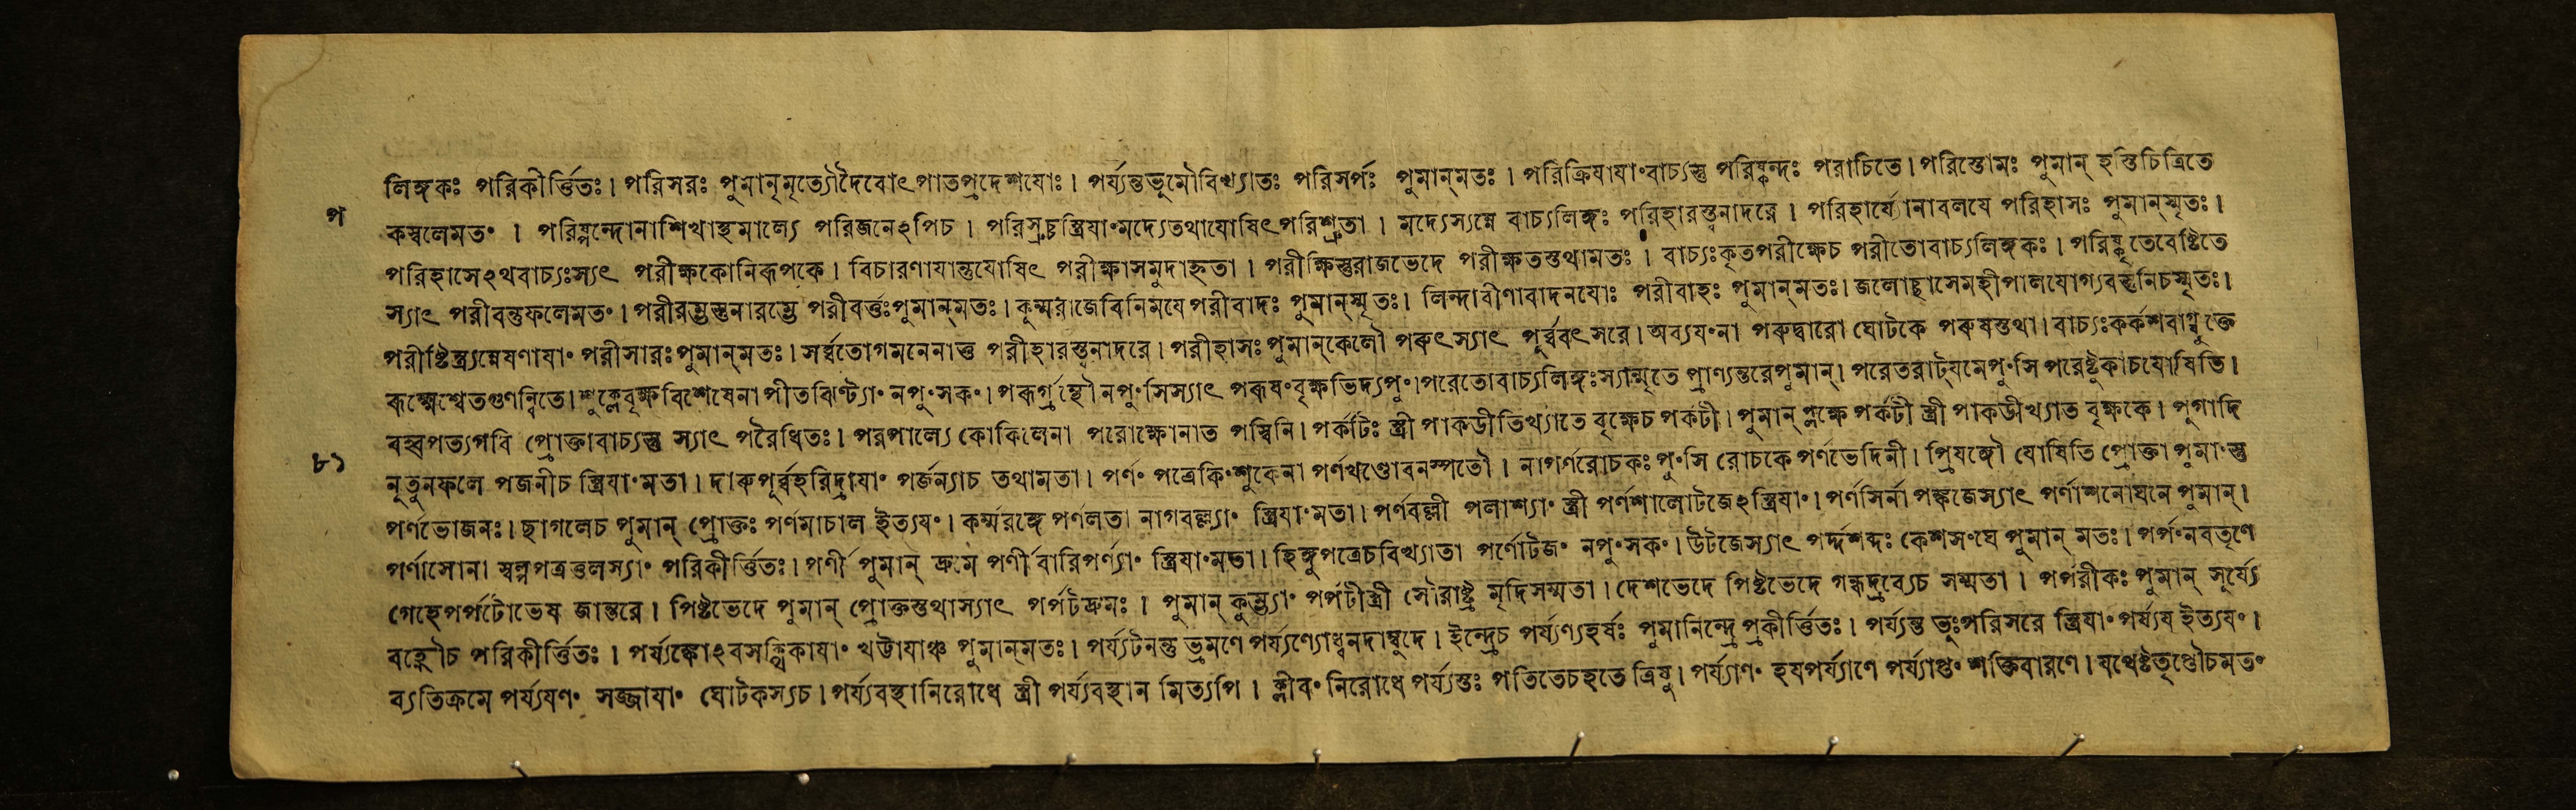 লিঙ্গকঃ পরিকীর্ত্তিতঃ। পরিসরঃ পুমান্মৃত্যৌদৈবোৎপাতপ্রদেশযোঃ। পর্য্যন্তভুমৌবিখ্যাতঃ পরিসর্পঃ পুমান্মতঃ । পরিক্রিযাযাং বাচ্যস্তু পরিষ্কন্দঃ পরাচিতে। পরিস্তোমঃ পুমান্ হস্তিচিত্রিতে
প কম্বলেমতং । পরিষ্পন্দোনাশিখাহ্বমাল্যে পরিজনেঽপিচ । পরিস্রুচস্ত্রিযাং মদ্যেতথাযোষিৎপরিশ্রুতা । মদ্যেস্যন্নে বাচ্যলিঙ্গঃ পরিহারস্ত্বনাদরে । পরিহার্য্যোনাবলযে পরিহাসঃ পুমান্স্মৃতঃ।
পরিহাসেঽথবাচ্যঃস্যৎ পরীক্ষকোনিরূপকে। বিচারণাযান্তুযোষিৎ পরীক্ষাসমুদাহৃতা । পরীক্ষিত্তুরাজভেদে পরীক্ষতস্তথামতঃ । বাচ্যঃকৃতপরীক্ষেচ পরীতোবাচ্যলিঙ্গকঃ। পরিষ্কৃতেবেষ্টিতে
স্যাৎ পরীবন্তুফলেমতং । পরীরম্ভস্তুনারম্ভে পরীবর্ত্তঃপুমান্মতঃ। কূর্ম্মরাজেবিনিমযে পরীবাদঃ পুমান্স্মৃতঃ। লিন্দাবীণাবাদনযোঃ পরীবাহঃ পুমান্মতঃ। জলোচ্ছাসেমহীপালযোগ্যবস্তুনিচস্মৃতঃ।
পরীষ্টিস্ত্র্যন্বেষণাযাং পরীসারঃপুমান্মতঃ। সর্ব্বতোগমনেনাত্ত পরীহারস্ত্বনাদরে। পরীহাসঃ পুমান্কেলৌ পরুৎস্যাৎ পূর্ব্ববৎসরে। অব্যযং না পরুদ্বারো ঘোটকে পরুষস্তথা। বাচ্যঃকর্কশবাগ্যুক্তে
রূক্ষেশ্বেতগুণন্বিতে। শুক্লেবৃক্ষবিশেষেনা পীতঝিণ্ট্যাং নপুংসকং । পরূর্গ্রন্থৌনপুংসিস্যাৎ পরূষং বৃক্ষভিদ্যপুং। পরেতোবাচ্যলিঙ্গঃস্যান্মৃতে প্রাণ্যন্তরেপুমান্। পরেতরাট্যমেপুংসি পরেষ্টুকাচযোষিতি।
বহ্বপত্যগবি প্রোক্তাবাচ্যস্তু স্যাৎ পরৈধিতঃ। পরপাল্যে কোকিলেনা পরোক্ষোনাত পস্বিনি। পর্কটিঃ স্ত্রী পাকডীতিখ্যাতে বৃক্ষেচ পর্কটী। পুমান্ প্লক্ষে পর্কটী স্ত্রী পাকডীখ্যাত বৃক্ষকে। পুগাদি
৮১ নূতুনফলে পজনীচ স্ত্রিযাং মতা। দারুপূর্ব্বহরিদ্রাযাং পর্জন্যাচ তথামতা। পর্ণং পত্রেকিংশুকেনা পর্ণখণ্ডোবনস্পতৌ । নাগর্ণরোচকঃ পুংসি রোচকে পর্ণভেদিনী। প্রিযঙ্গৌ যোষিতি প্রোক্তা পুমাংস্তু
পর্ণভোজনঃ। ছাগলেচ পুমান্ প্রোক্তঃ পর্ণমাচাল ইত্যযং। কর্ম্মরঙ্গে পর্ণলতা নাগবল্ল্যাং স্ত্রিযাং মতা। পর্ণবল্লী পলাশ্যাং স্ত্রী পর্ণশালোটজেঽস্ত্রিযাং। পর্ণসির্না পঙ্কজেস্যাৎ পর্ণাশনোঘনে পুমান্।
পর্ণাসোনা স্বল্পপত্রত্তলস্যাং পরিকীর্ত্তিতঃ। পর্ণী পুমান্ দ্রুমে পর্ণী বারিপর্ণ্যাং স্ত্রিযাং মতা। হিঙ্গুপত্রেচবিখ্যাতা পর্ণোটজং নপুংসকং। উটজেস্যাৎ পর্দ্দশব্দঃ কেশসংঘে পুমান্ মতঃ। পর্পং নবতৃণে
গেহেপর্পটোভেষ জান্তরে। পিষ্টভেদে পুমান্ প্রোক্তস্তথাস্যাৎ পর্পটদ্রুমঃ । পুমান্ কুম্ভ্যাং পর্পটীস্ত্রী সৌরাষ্ট্র মৃদিসম্মতা। দেশভেদে পিষ্টভেদে গন্ধদ্রব্যেচ সম্মতা । পর্পরীকঃ পুমান্ সূর্য্যে
বহ্নৌচ পরিকীর্ত্তিতঃ । পর্য্যঙ্কোঽবসক্থিকাযাং খট্টাযাঞ্চ পুমান্মতঃ। পর্য্যটনন্তু ভ্রমণে পর্য্যণ্যোধ্বনদাম্বুদে। ইন্দ্রেচ পর্য্যণ্যহর্ষঃ পুমানিন্দ্রে প্রকীর্ত্তিতঃ। পর্য্যন্ত ভূঃপরিসরে স্ত্রিযাং পর্য্যয ইত্যযং।
ব্যতিক্রমে পর্য্যযণং সজ্জাযাং ঘোটকস্যচ। পর্য্যবস্থানিরোধে স্ত্রী পর্য্যবস্থান মিত্যপি । ক্লীবং নিরোধে পর্য্যস্তঃ পতিতেচহতে ত্রিষু। পর্য্যাণং হযপর্য্যাণে পর্য্যাপ্তং শক্তিবারণে। যথেষ্টতৃপ্তৌচমতং